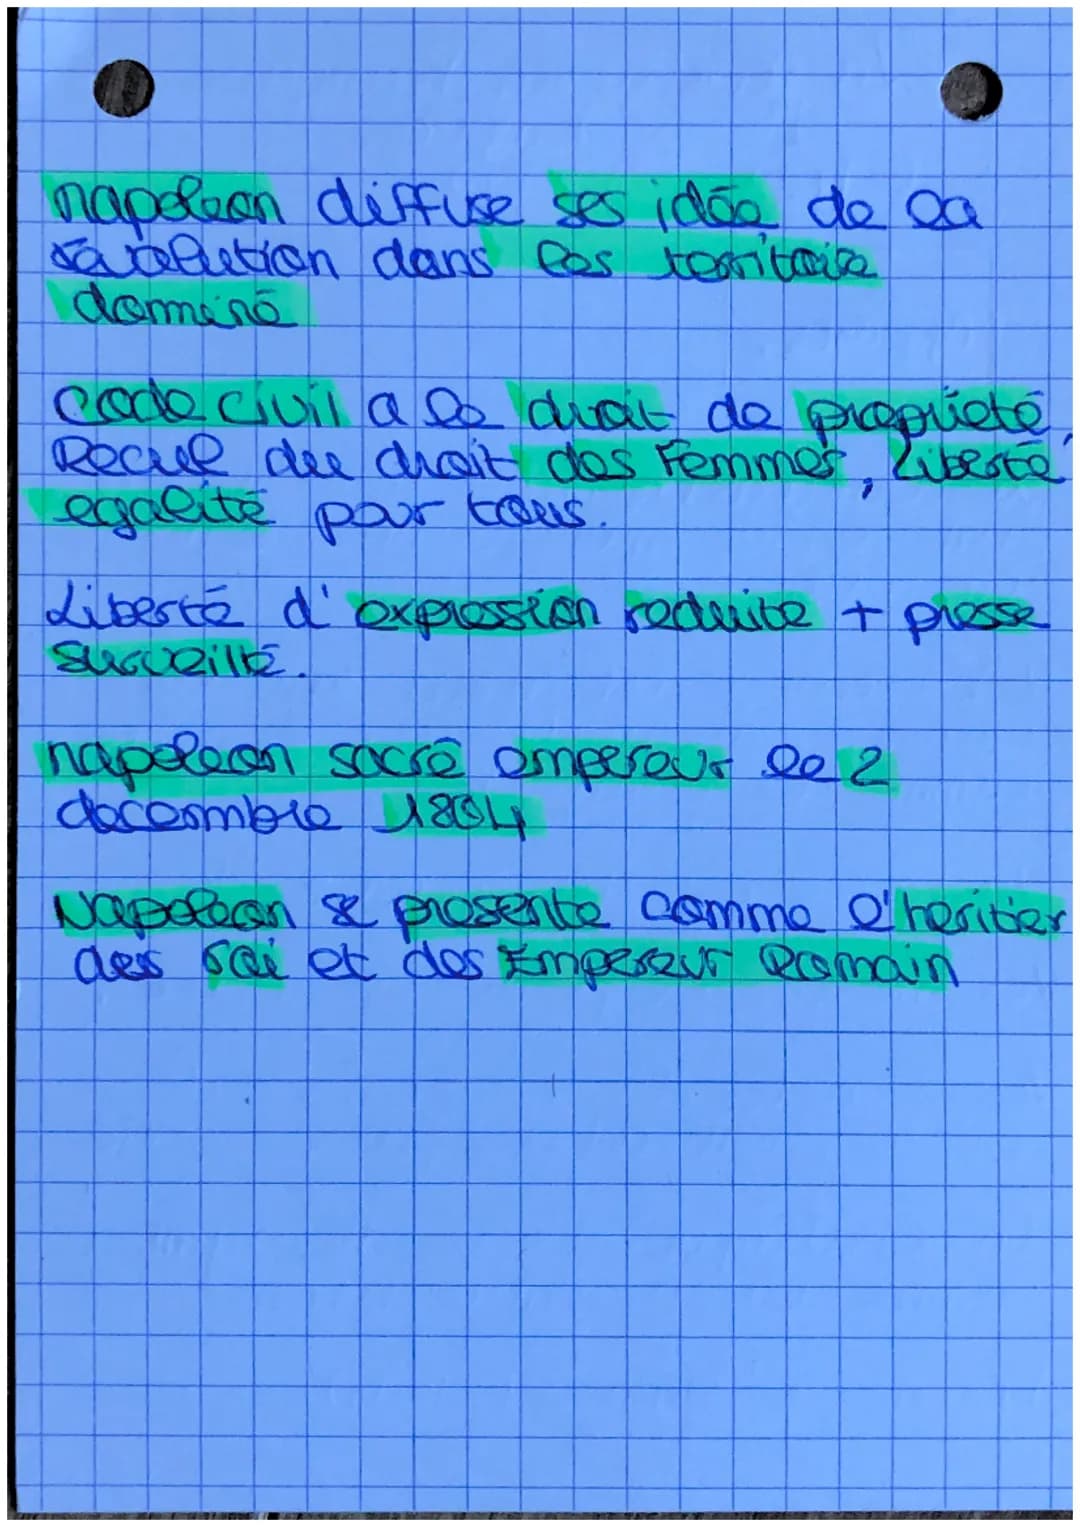 napoleon diffuse ses idée de la
révolution dans les territoire
dominé
Code civil a le droit de propriété,
Recul du droit des Femmes, Liberté,
egalité pour tous.
Liberté d'expression reduite + presse
surveillé.
napoleon sacré empereur le 2
decembre 1804
Napoleon se presente comme l'heritier
des roi et des Empereur Romain